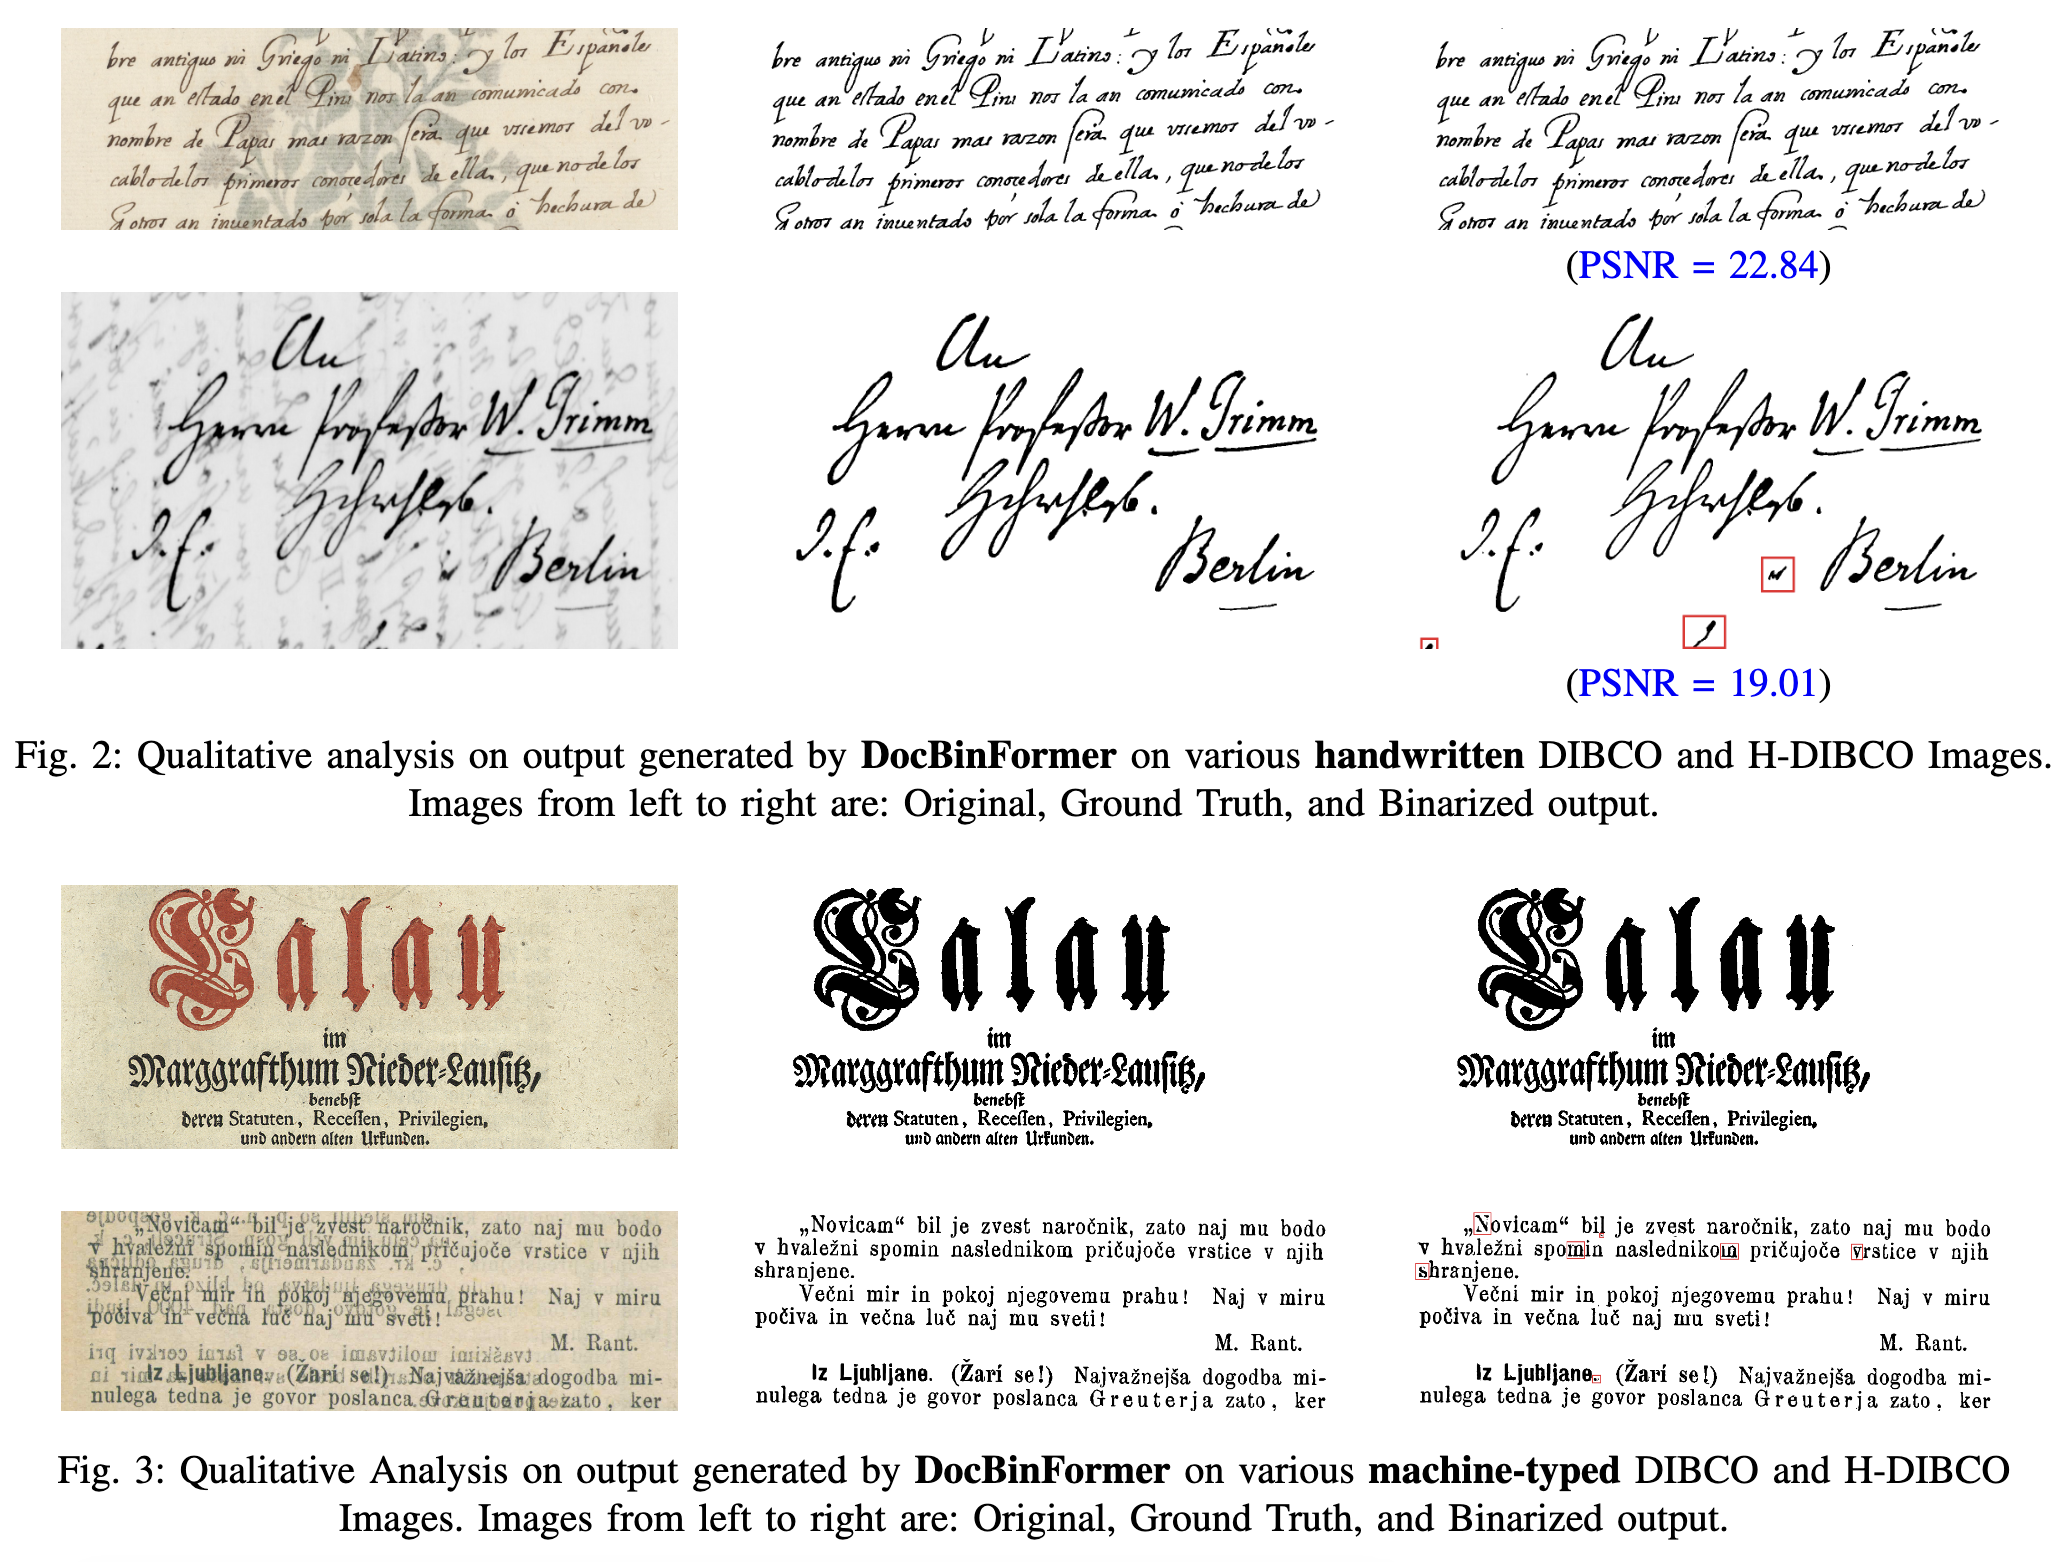 bre antiguo ni Griego ni Latino: y los Españoles
que an estado en el Piru nos la an comunicado con.
nombre de Papas mas razon sera que usemos del vo-
cablo de los primeros conocedores de ella, que no de los
q otros an inuentado por sola la forma o hechura de
bre antiguo ni Griego ni Latino: y los Españoles
que an estado en el Piru nos la an comunicado con.
nombre de Papas mas razon sera que usemos del vo-
cablo de los primeros conocedores de ella, que no de los
q otros an inuentado por sola la forma o hechura de
bre antiguo ni Griego ni Latino: y los Españoles
que an estado en el Piru nos la an comunicado con.
nombre de Papas mas razon sera que usemos del vo-
cablo de los primeros conocedores de ella, que no de los
q otros an inuentado por sola la forma o hechura de
(PSNR = 22.84)
An
Herrn Professor W. Grimm
J. f.
Berlin
An
Herrn Professor W. Grimm
J. f.
Berlin
An
Herrn Professor W. Grimm
J. f.
Berlin
(PSNR = 19.01)
Fig. 2: Qualitative analysis on output generated by DocBinFormer on various handwritten DIBCO and H-DIBCO Images.
Images from left to right are: Original, Ground Truth, and Binarized output.
Calau
im
Marggrafthum Nieder-Lausitz,
benebst
deren Statuten, Recessen, Privilegien,
und andern alten Urkunden.
Calau
im
Marggrafthum Nieder-Lausitz,
benebst
deren Statuten, Recessen, Privilegien,
und andern alten Urkunden.
Calau
im
Marggrafthum Nieder-Lausitz,
benebst
deren Statuten, Recessen, Privilegien,
und andern alten Urkunden.
„Novicam“ bil je zvest naročnik, zato naj mu bodo
v hvaležni spomin naslednikom pričujoče vrstice v njih
shranjene.
Večni mir in pokoj njegovemu prahu! Naj v miru
počiva in večna luč naj mu sveti!
M. Rant.
Iz Ljubljane. (Žarí se!) Najvažnejša dogodba mi-
nulega tedna je govor poslanca Greuterja zato, ker
„Novicam“ bil je zvest naročnik, zato naj mu bodo
v hvaležni spomin naslednikom pričujoče vrstice v njih
shranjene.
Večni mir in pokoj njegovemu prahu! Naj v miru
počiva in večna luč naj mu sveti!
M. Rant.
Iz Ljubljane. (Žarí se!) Najvažnejša dogodba mi-
nulega tedna je govor poslanca Greuterja zato, ker
„Novicam“ bil je zvest naročnik, zato naj mu bodo
v hvaležni spomin naslednikom pričujoče vrstice v njih
shranjene.
Večni mir in pokoj njegovemu prahu! Naj v miru
počiva in večna luč naj mu sveti!
M. Rant.
Iz Ljubljane. (Žarí se!) Najvažnejša dogodba mi-
nulega tedna je govor poslanca Greuterja zato, ker
Fig. 3: Qualitative Analysis on output generated by DocBinFormer on various machine-typed DIBCO and H-DIBCO
Images. Images from left to right are: Original, Ground Truth, and Binarized output.